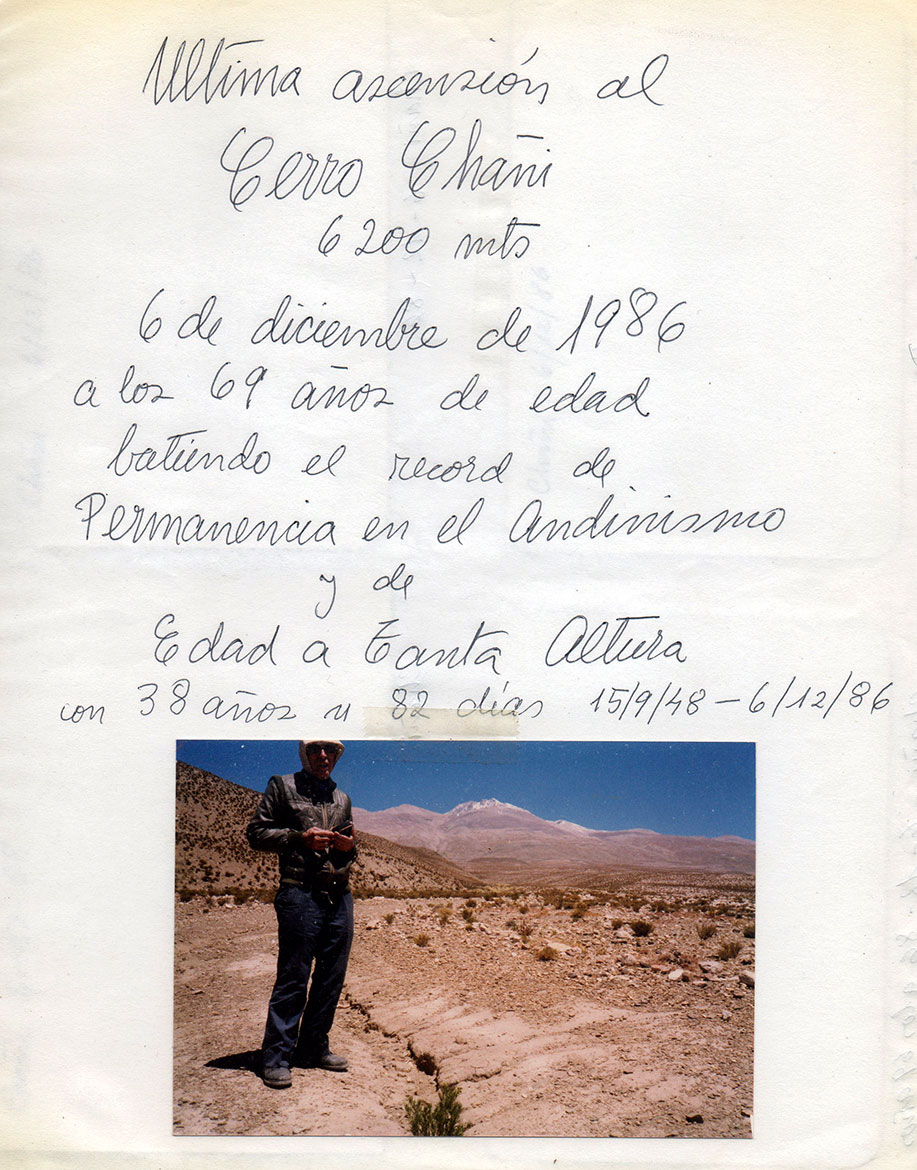 Ultima ascensión al
Cerro Chañi
6200 mts
6 de diciembre de 1986
a los 69 años de edad
batiendo el record de
Permanencia en el Andinismo
y de
Edad a Tanta Altura
con 38 años y 82 días 15/9/48 - 6/12/86